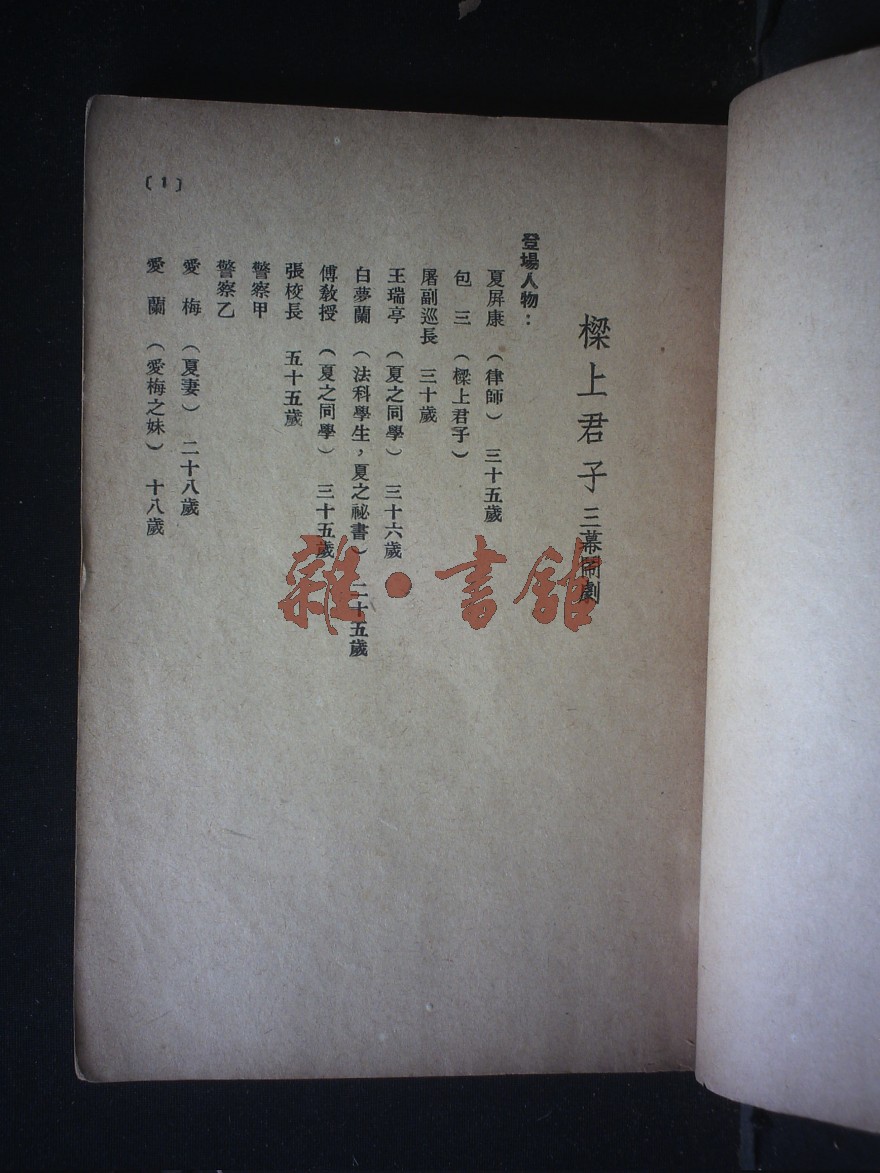 樑上君子 三幕鬧劇
登場人物：
夏屏康 （律師） 三十五歲
包 三 （樑上君子）
屠副巡長 三十歲
王瑞亭 （夏之同學） 三十六歲
白夢蘭 （法科學生，夏之祕書） 二十五歲
傅敎授 （夏之同學） 三十五歲
張校長 五十五歲
警察甲
警察乙
愛 梅 （夏妻） 二十八歲
愛 蘭 （愛梅之妹） 十八歲
〔1〕
雜·書館